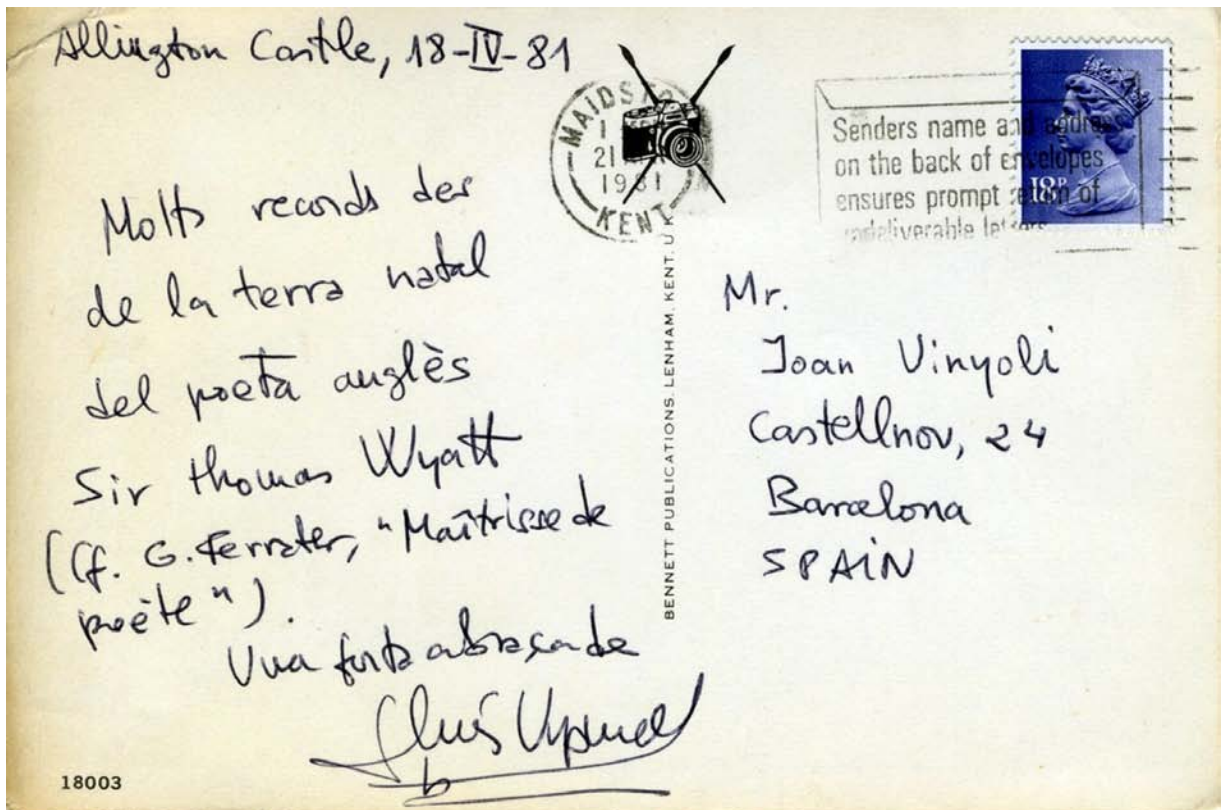 Allington Castle, 18-IV-81
Molts records des
de la terra natal
del poeta anglès
Sir Thomas Wyatt
(Cf. G. Ferrater, "Maîtrisse de
poète").
Una forta abraçada
Lluís
18003
MAIDSTO
21
1981
KENT
BENNETT PUBLICATIONS, LENHAM, KENT. U
Senders name and addre
on the back of envelopes
ensures prompt return of
undeliverable letters
18P
Mr.
Joan Vinyoli
Castellnou, 24
Barcelona
SPAIN